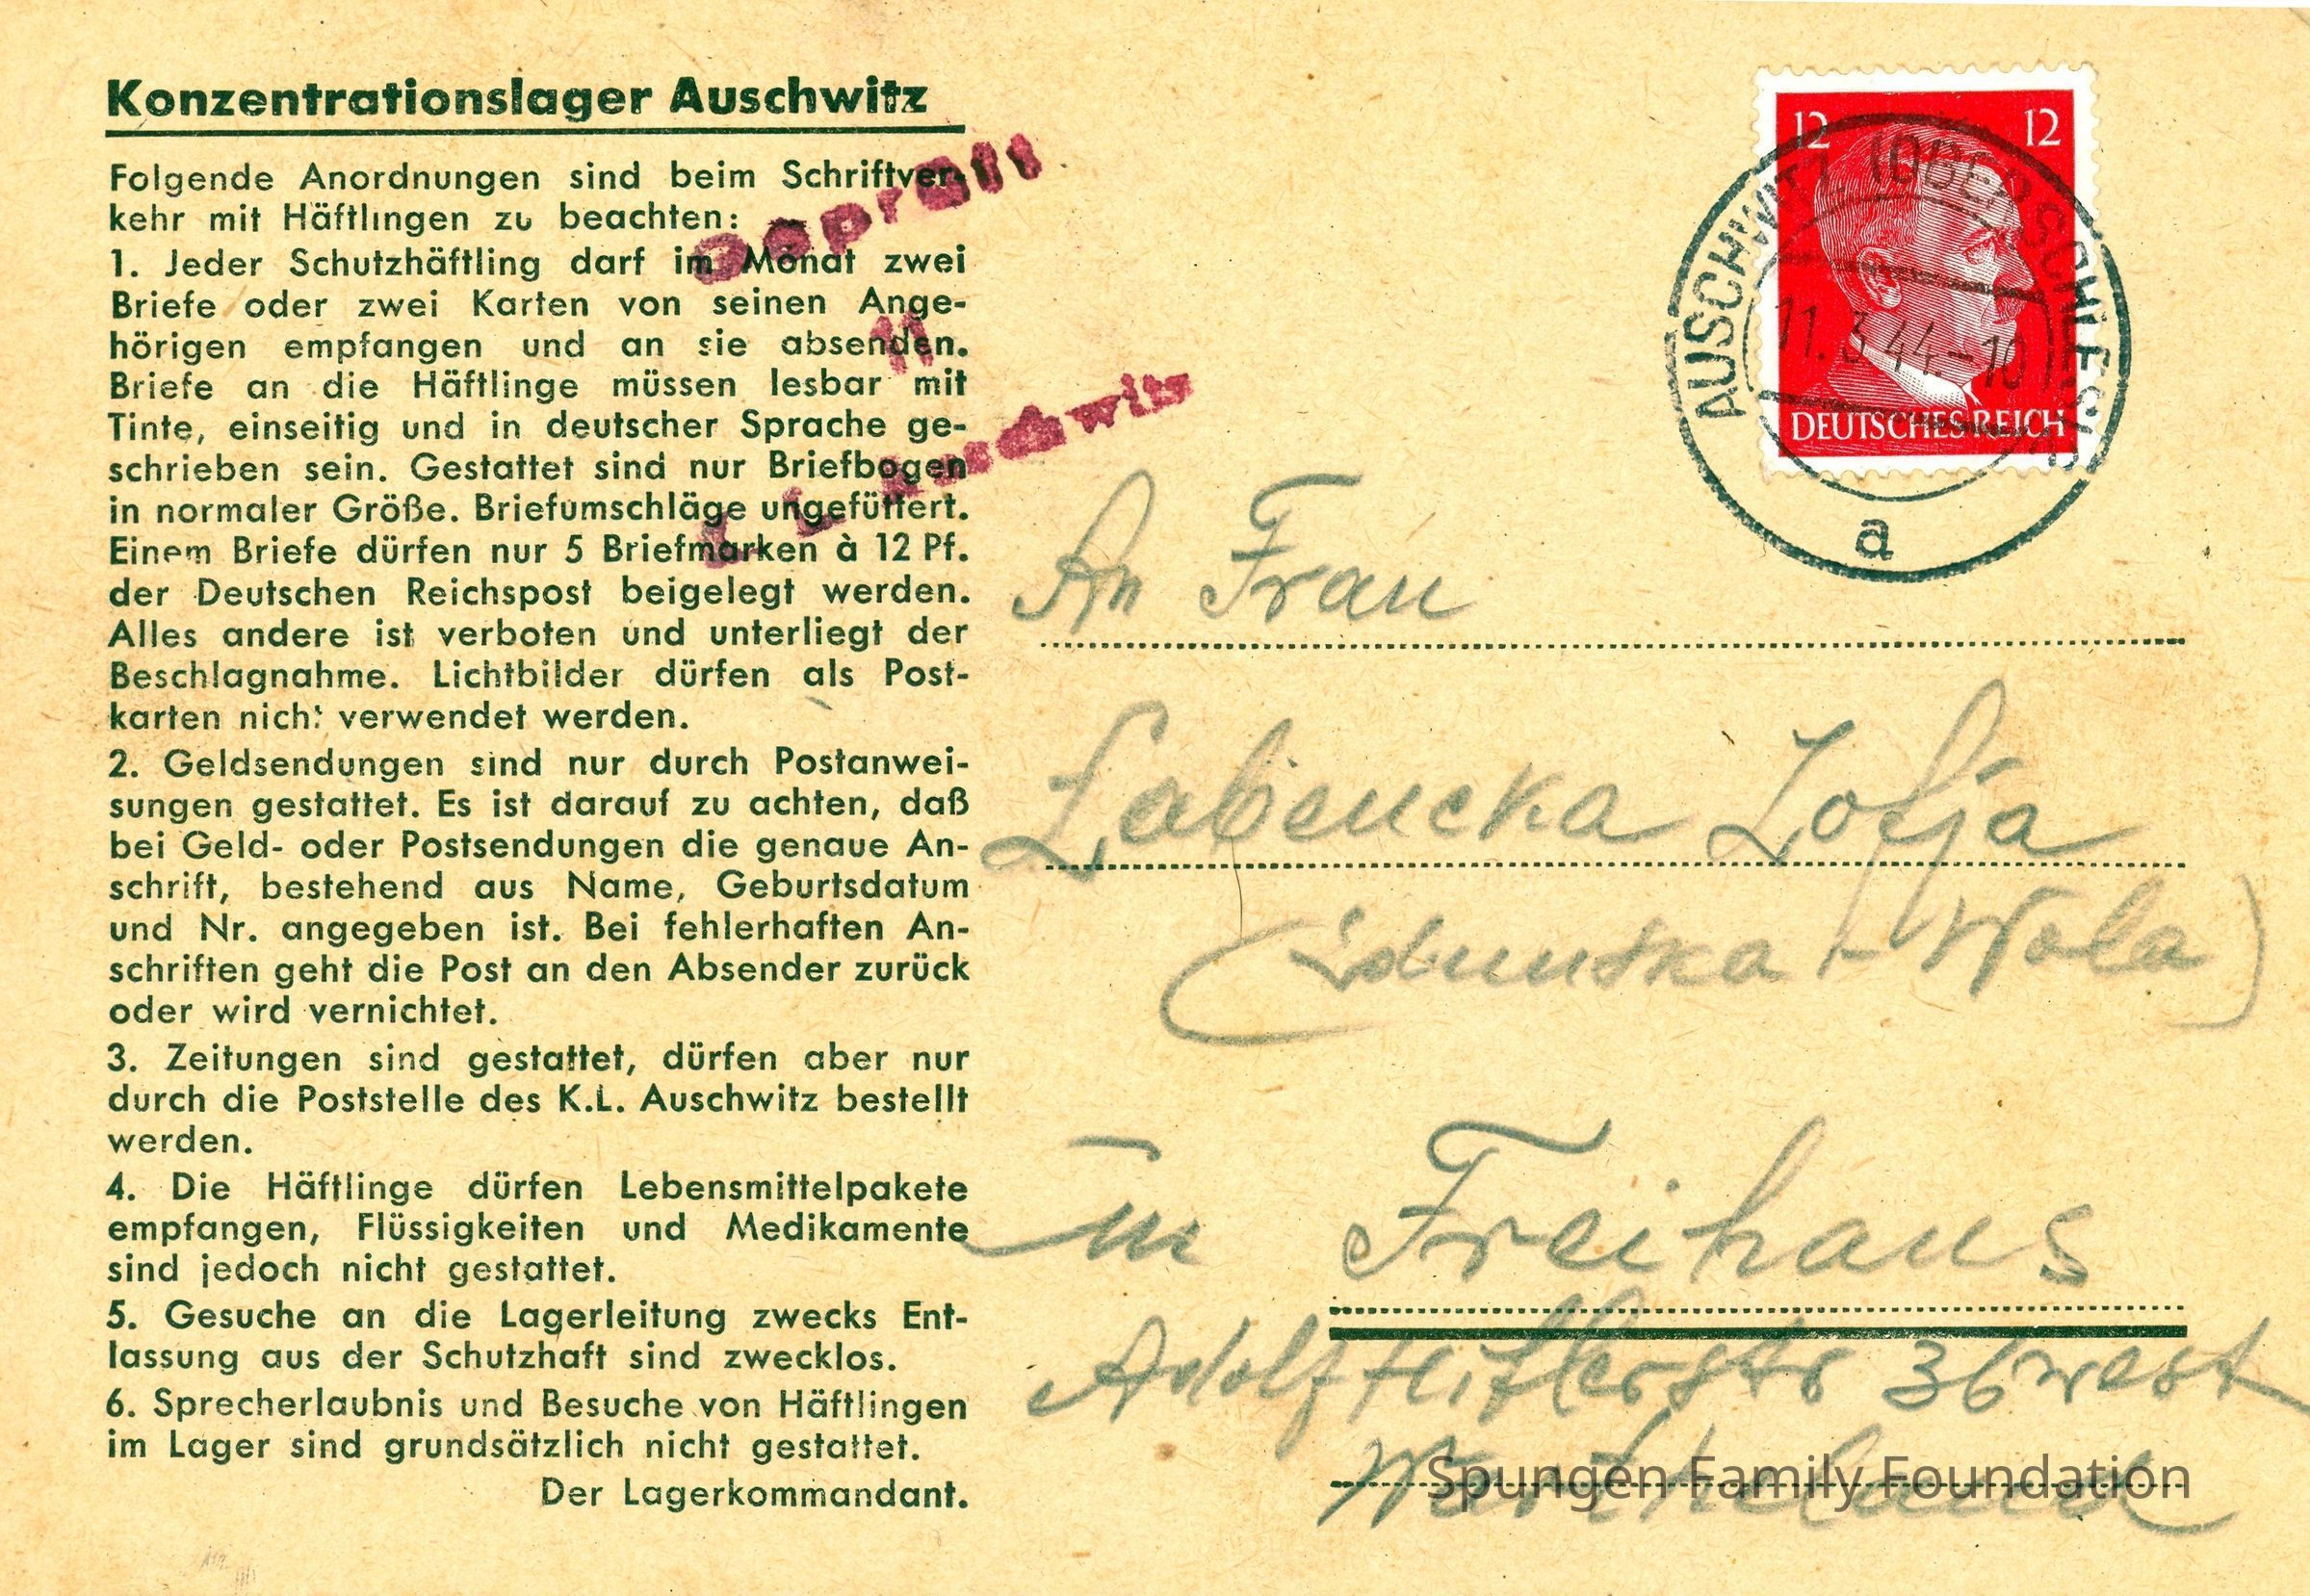 Konzentrationslager Auschwitz
Folgende Anordnungen sind beim Schriftver-
kehr mit Häftlingen zu beachten:
1. Jeder Schutzhäftling darf im Monat zwei
Briefe oder zwei Karten von seinen Ange-
hörigen empfangen und an sie absenden.
Briefe an die Häftlinge müssen lesbar mit
Tinte, einseitig und in deutscher Sprache ge-
schrieben sein. Gestattet sind nur Briefbogen
in normaler Größe. Briefumschläge ungefüttert.
Einem Briefe dürfen nur 5 Briefmarken à 12 Pf.
der Deutschen Reichspost beigelegt werden.
Alles andere ist verboten und unterliegt der
Beschlagnahme. Lichtbilder dürfen als Post-
karten nicht verwendet werden.
2. Geldsendungen sind nur durch Postanwei-
sungen gestattet. Es ist darauf zu achten, daß
bei Geld- oder Postsendungen die genaue An-
schrift, bestehend aus Name, Geburtsdatum
und Nr. angegeben ist. Bei fehlerhaften An-
schriften geht die Post an den Absender zurück
oder wird vernichtet.
3. Zeitungen sind gestattet, dürfen aber nur
durch die Poststelle des K.L. Auschwitz bestellt
werden.
4. Die Häftlinge dürfen Lebensmittelpakete
empfangen, Flüssigkeiten und Medikamente
sind jedoch nicht gestattet.
5. Gesuche an die Lagerleitung zwecks Ent-
lassung aus der Schutzhaft sind zwecklos.
6. Sprecherlaubnis und Besuche von Häftlingen
im Lager sind grundsätzlich nicht gestattet.
Der Lagerkommandant.
Geprüft
11
K. L. Auschwitz
12 12
DEUTSCHES REICH
AUSCHWITZ (OBERSCHLES)
11.3.44.-10
a
An Frau
Labencka Zofja
(Zdunska - Wola)
in Freihaus
Adolf Hitlerstr 36 west
Wartheland
Spungen Family Foundation